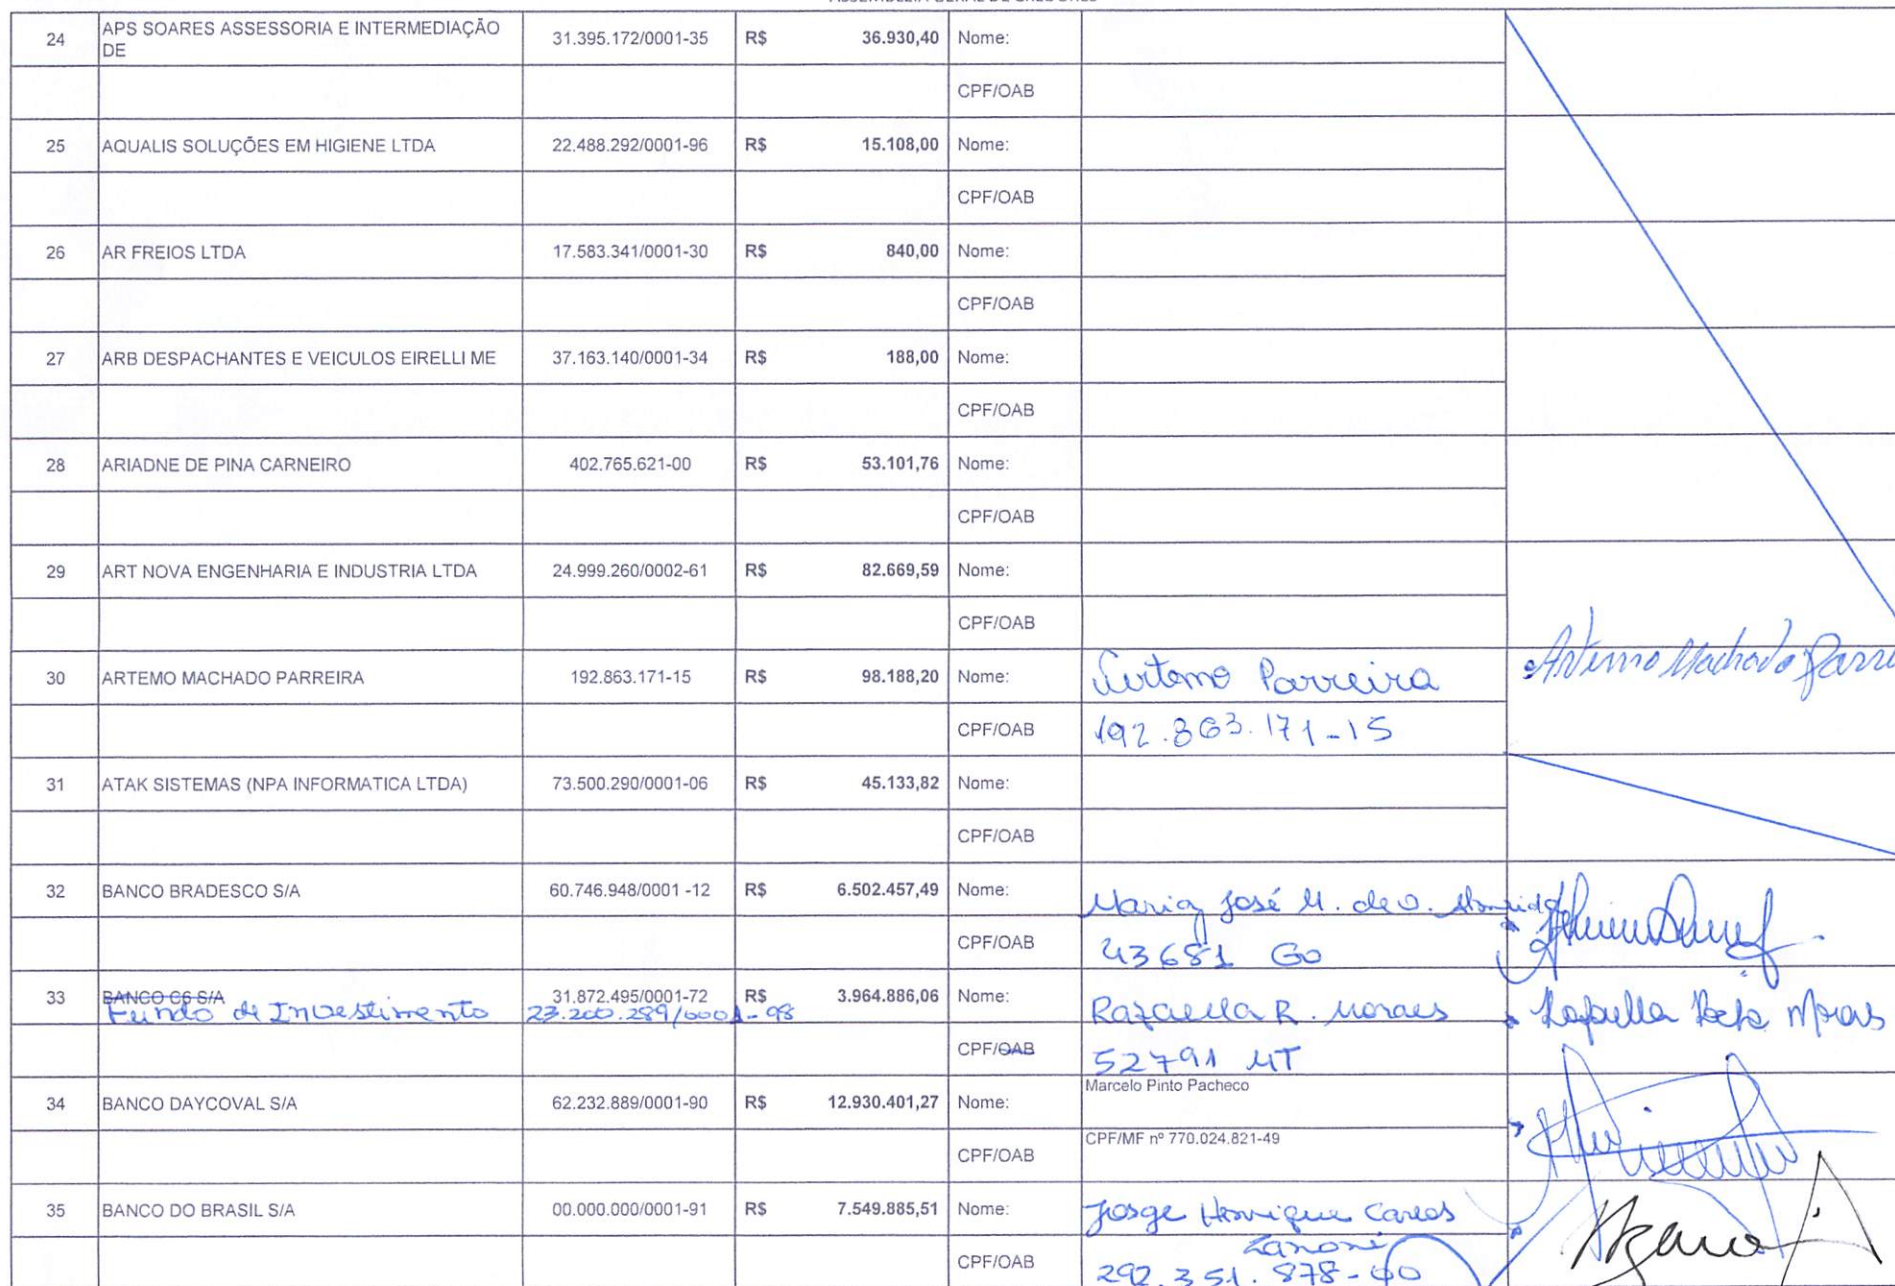 24 APS SOARES ASSESSORIA E INTERMEDIAÇÃO DE 31.395.172/0001-35 R$ 36.930,40 Nome:
CPF/OAB
25 AQUALIS SOLUÇÕES EM HIGIENE LTDA 22.488.292/0001-96 R$ 15.108,00 Nome:
CPF/OAB
26 AR FREIOS LTDA 17.583.341/0001-30 R$ 840,00 Nome:
CPF/OAB
27 ARB DESPACHANTES E VEICULOS EIRELLI ME 37.163.140/0001-34 R$ 188,00 Nome:
CPF/OAB
28 ARIADNE DE PINA CARNEIRO 402.765.621-00 R$ 53.101,76 Nome:
CPF/OAB
29 ART NOVA ENGENHARIA E INDUSTRIA LTDA 24.999.260/0002-61 R$ 82.669,59 Nome:
CPF/OAB
30 ARTEMO MACHADO PARREIRA 192.863.171-15 R$ 98.188,20 Nome: Artemo Parreira Artemo Machado Parrei
CPF/OAB 192.863.171-15
31 ATAK SISTEMAS (NPA INFORMATICA LTDA) 73.500.290/0001-06 R$ 45.133,82 Nome:
CPF/OAB
32 BANCO BRADESCO S/A 60.746.948/0001 -12 R$ 6.502.457,49 Nome: Maria José M. de O. Almeida
CPF/OAB 43681 GO
33 BANCO C6 S/A 31.872.495/0001-72 R$ 3.964.886,06 Nome: Rafaella R. Moraes
Fundo de Investimento 23.200.289/0001-98
CPF/OAB 52791 MT
34 BANCO DAYCOVAL S/A 62.232.889/0001-90 R$ 12.930.401,27 Nome: Marcelo Pinto Pacheco
CPF/OAB CPF/MF nº 770.024.821-49
35 BANCO DO BRASIL S/A 00.000.000/0001-91 R$ 7.549.885,51 Nome: Josge Henrique Carlos
Zanoni
CPF/OAB 292.351.878-40